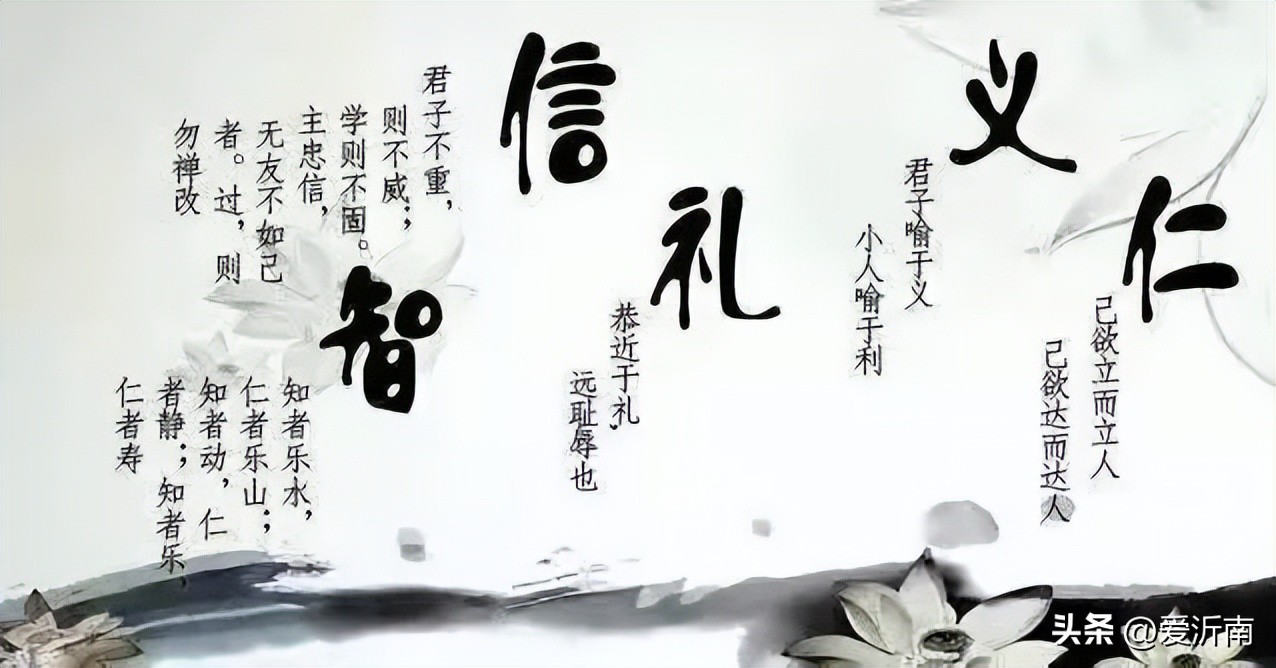 仁
己欲立而立人
己欲达而达人
义
君子喻于义
小人喻于利
礼
恭近于礼，
远耻辱也
智
知者乐水，
仁者乐山；
知者动，仁
者静；知者乐，
仁者寿
信
君子不重，
则不威；
学则不固。
主忠信，
无友不如己
者。过，则
勿禅改
头条 @爱沂南